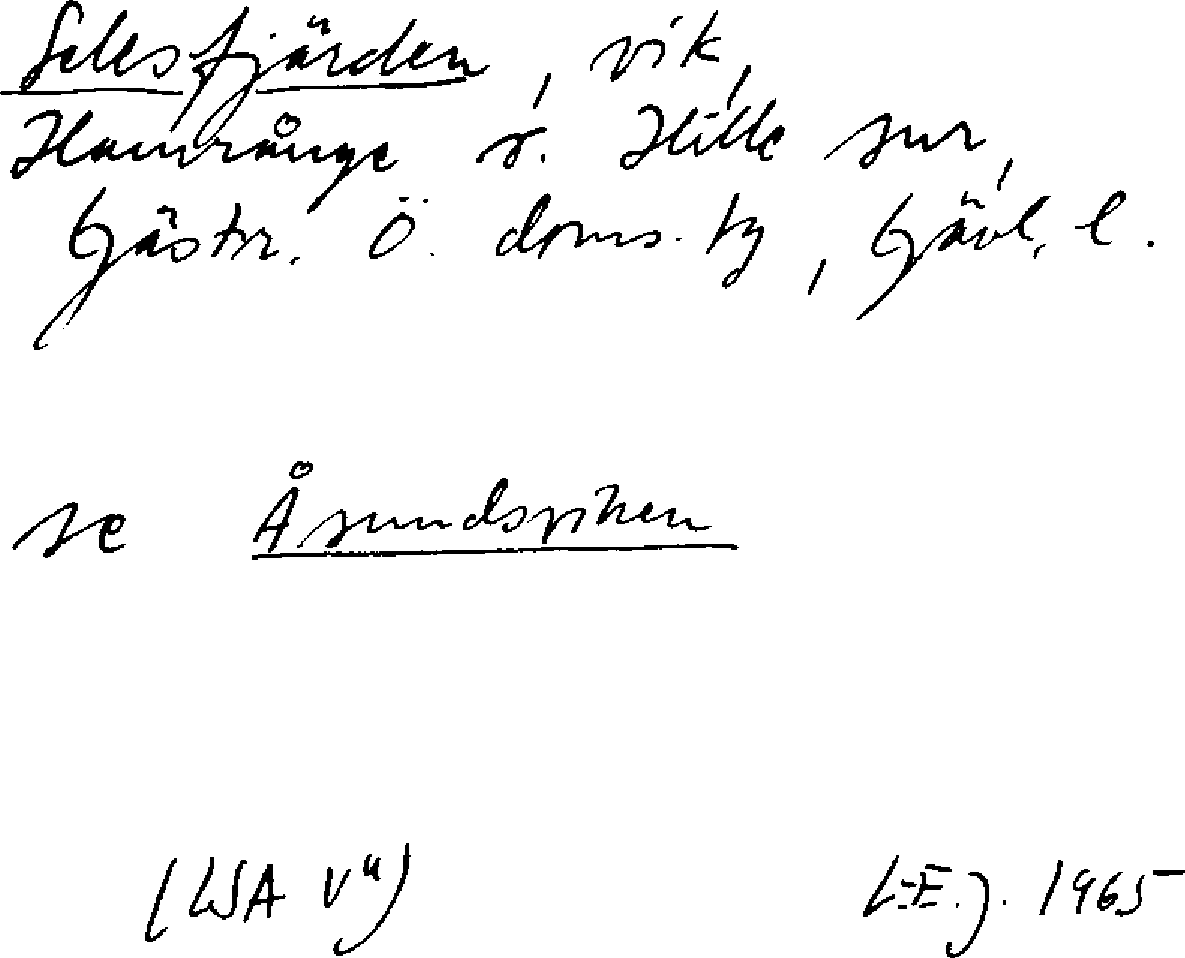 Selesfjärden, vik,
Hamrånge s. Hille sn,
Gästr. Ö. doms. tg, Gävl. l.
se Åsundsviken
(LSA V⁴)
L-E.J. 1965